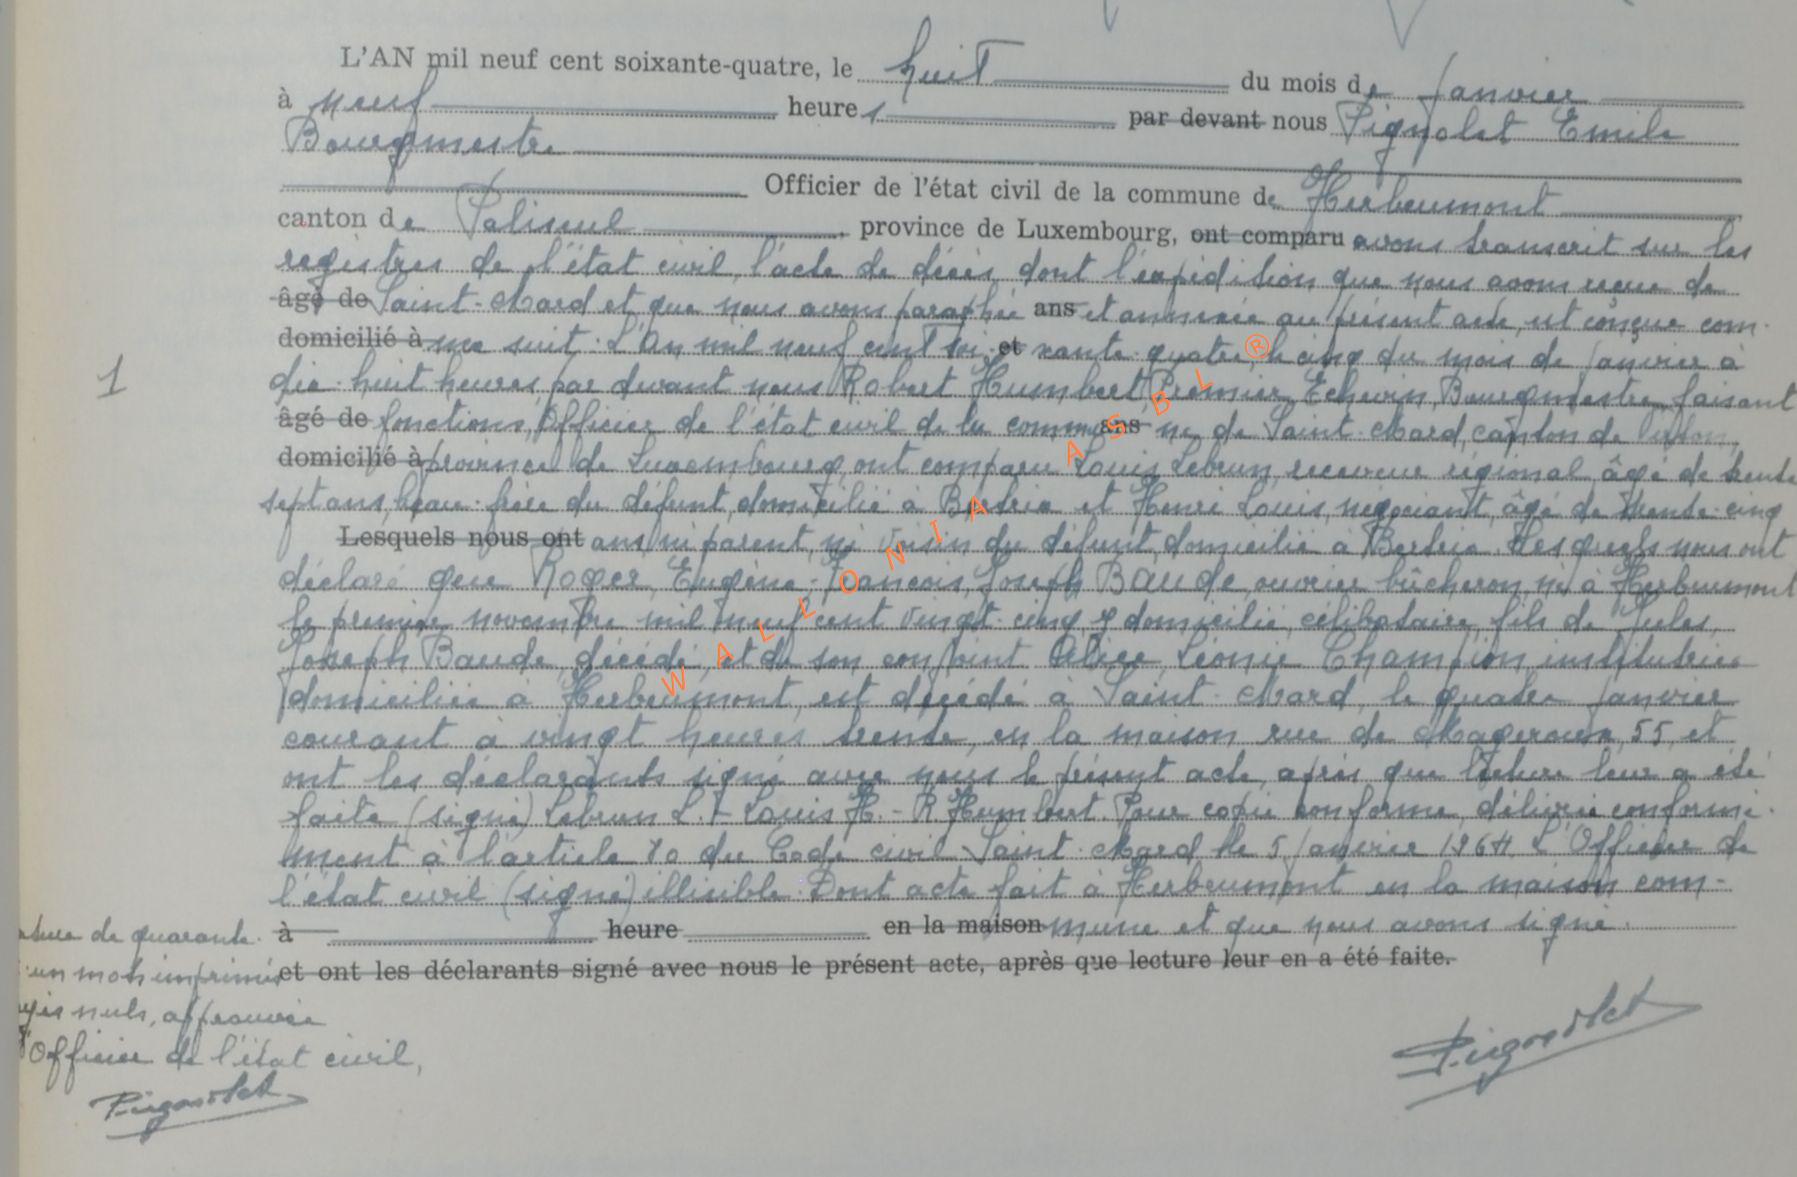 L'AN mil neuf cent soixante-quatre, le huit du mois de Janvier
à neuf heures par devant nous Pignolet Emile
Bourgmestre
Officier de l'état civil de la commune de Herbeumont
canton de Paliseul, province de Luxembourg, ont comparu avons transcrit sur les
registres de l'état civil, l'acte de décès, dont l'expédition que nous avons reçue de
âgé de Saint-Mard et que nous avons paraphée ans et annexée au présent acte, est conçue com-
domicilié à me suit : L'An mil neuf cent soi- et xante-quatre, le cinq du mois de janvier à
1
dix-huit heures, par devant nous Robert Humbert, Premier Echevin, Bourgmestre faisant
âgé de fonctions, Officier de l'état civil de la commu- ans ne de Saint-Mard, canton de Virton,
domicilié à province de Luxembourg, ont comparu Louis Lebrun, receveur régional, âgé de trente
sept ans, beau-frère du défunt, domicilié à Bertrix et Henri Louis, négociant, âgé de trente-cinq
Lesquels nous ont ans, ni parent, ni voisin du défunt, domicilié à Bertrix. Lesquels nous ont
déclaré que Roger, Eugène-François, Joseph Baude, ouvrier bûcheron, né à Herbeumont
le premier novembre mil neuf cent vingt-cinq, y domicilié, célibataire, fils de Jules,
Joseph Baude, décédé, et de son conjoint Alice, Léonie Champion, institutrice
domiciliée à Herbeumont, est décédé à Saint-Mard, le quatre janvier
courant à vingt heures trente, en la maison rue de 55, et
ont les déclarants signé avec nous le présent acte, après que lecture leur a été
faite (signé) Lebrun L. - Louis H. - R Humbert. Pour copie conforme, délivrée conformé-
ment à l'article 80 du Code civil Saint-Mard le 5 janvier 1964 L'Officier de
l'état civil (signé) illisible. Dont acte fait à Herbeumont en la maison com-
à heure en la maison mune et que nous avons signé.
et ont les déclarants signé avec nous le présent acte, après que lecture leur en a été faite.
de quarante-
un mots imprimés
nuls, approuvée
L'Officier de l'état civil,
Pignolet
Pignolet
WALLONIA ASBL ®